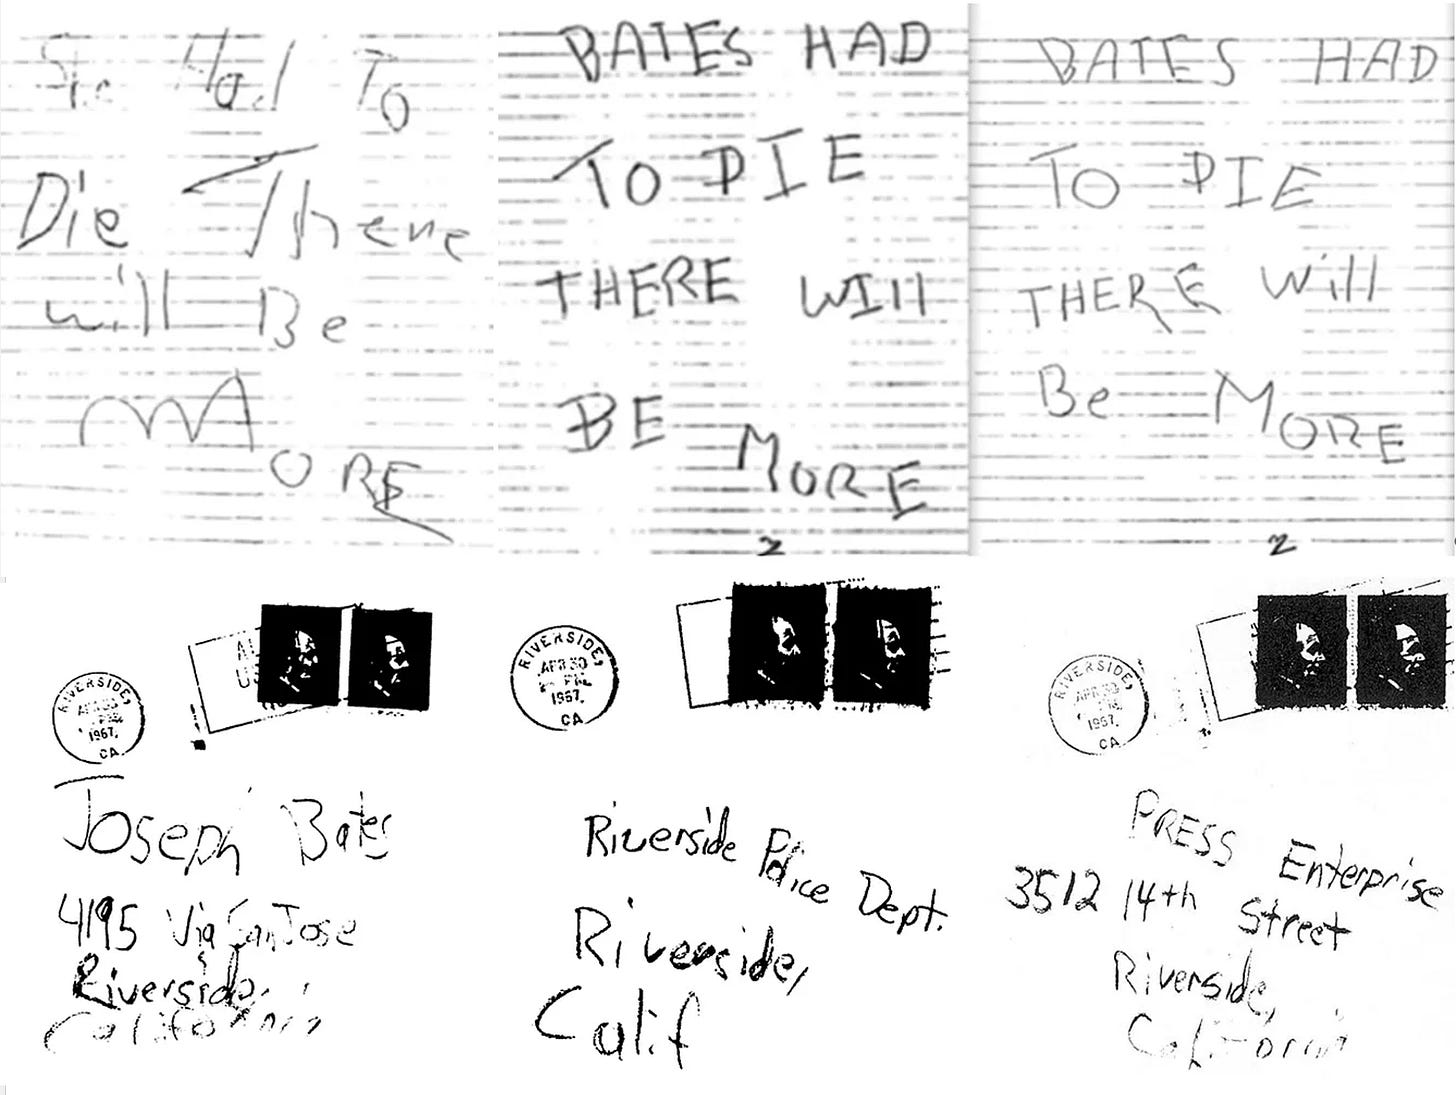 She Had To
Die There
will Be
MORE
BATES HAD
TO DIE
THERE WIll
BE MORE
2
BATES HAD
TO DIE
THERE Will
Be MORE
2
RIVERSIDE,
APR 30
PM
1967.
CA
Joseph Bates
4195 Via San Jose
Riverside,
California
RIVERSIDE,
APR 30
PM
1967.
CA
Riverside Police Dept.
Riverside,
Calif
RIVERSIDE,
APR 30
PM
1967.
CA
PRESS Enterprise
3512 14th Street
Riverside,
California